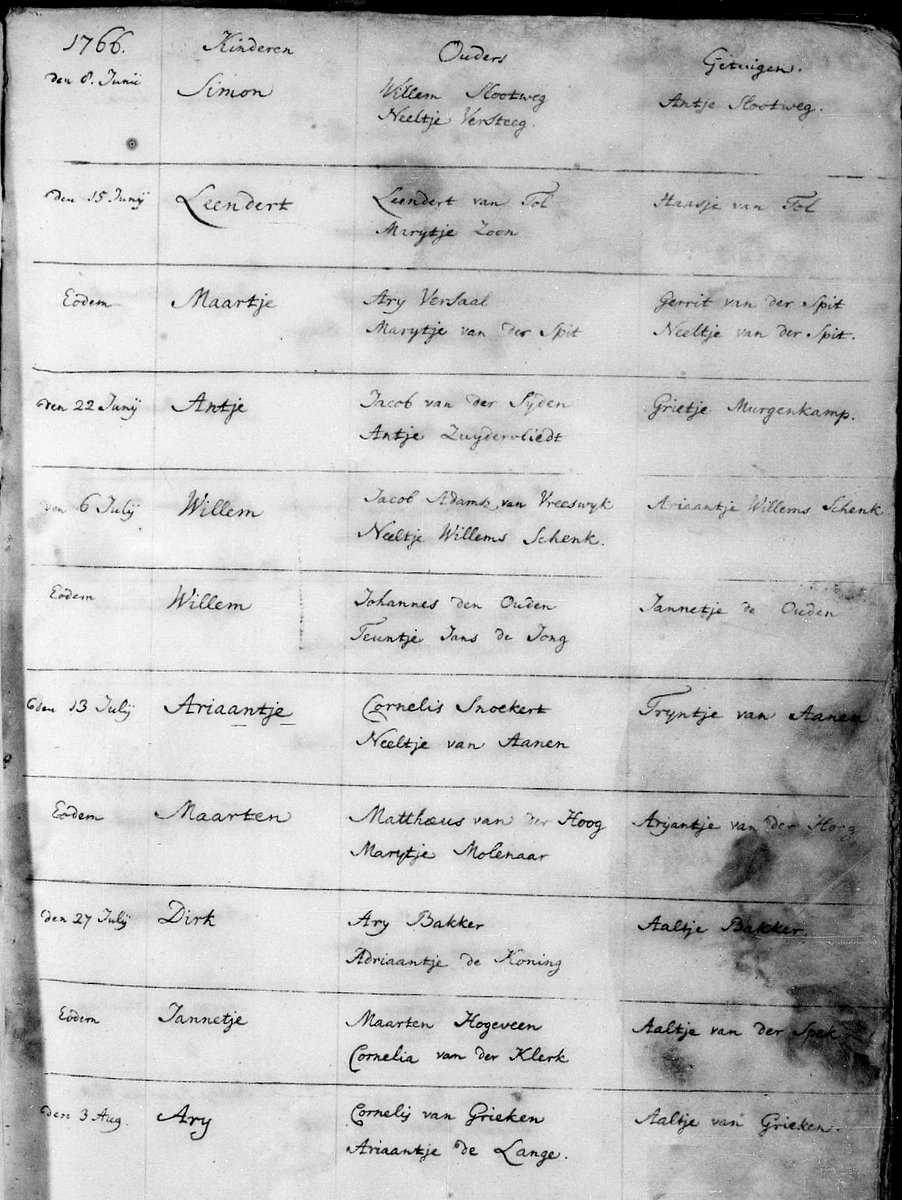 1766. Kinderen Ouders Getuigen.
den 8. Junij Simon Willem Slootweg Antje Slootweg.
Neeltje Versteeg.
den 15 Junij Leendert Leendert van Tol Haasje van Tol
Marytje Zoon
Eodem Maartje Ary Versaal Gerrit van der Spit
Marytje van der Spit Neeltje van der Spit.
den 22 Junij Antje Jacob van der Syden Grietje Murgenkamp.
Antje Zuydervliedt
den 6 Julij Willem Jacob Adams van Vreeswyk Ariaantje Willems Schenk
Neeltje Willems Schenk.
Eodem Willem Johannes den Ouden Jannetje de Ouden
Teuntje Jans de Jong
den 13 Julij Ariaantje Cornelis Snoekert Tryntje van Aanen
Neeltje van Aanen
Eodem Maarten Matthæus van der Hoog Aryantje van der Hoog
Marytje Molenaar
den 27 Julij Dirk Ary Bakker Aaltje Bakker
Adriaantje de Koning
Eodem Jannetje Maarten Hogeveen Aaltje van der Spek
Cornelia van der Klerk
den 3 Aug. Ary Cornelis van Grieken Aaltje van Grieken.
Ariaantje de Lange.